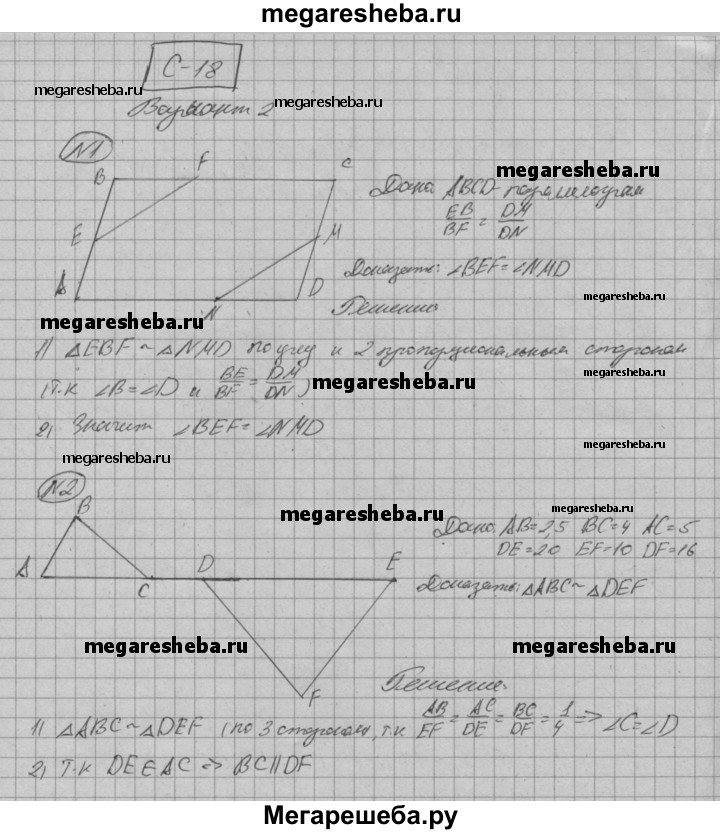 megaresheba.ru
С-18
megaresheba.ru
Вариант 2 megaresheba.ru
N1
B F C
E M
A N D
megaresheba.ru
Дано: ABCD - параллелограм
EB/BF = DM/DN
Доказать: ∠BEF = ∠NMD
megaresheba.ru
Решение
megaresheba.ru
megaresheba.ru
1) ΔEBF ~ ΔNMD по углу и 2 пропорциональным сторонам
(т.к ∠B = ∠D и BE/BF = DM/DN)
megaresheba.ru
megaresheba.ru
2) Значит ∠BEF = ∠NMD
megaresheba.ru
megaresheba.ru
N2
B
A C D E
F
megaresheba.ru
megaresheba.ru
Дано: AB=2,5 BC=4 AC=5
DE=20 EF=10 DF=16
megaresheba.ru
Доказать: ΔABC ~ ΔDEF
megaresheba.ru
megaresheba.ru
Решение
1) ΔABC ~ ΔDEF (по 3 сторонам, т.к AB/EF = AC/DE = BC/DF = 1/4 => ∠C = ∠D
2) т.к DE∈AC => BC||DF
Мегарешеба.ру